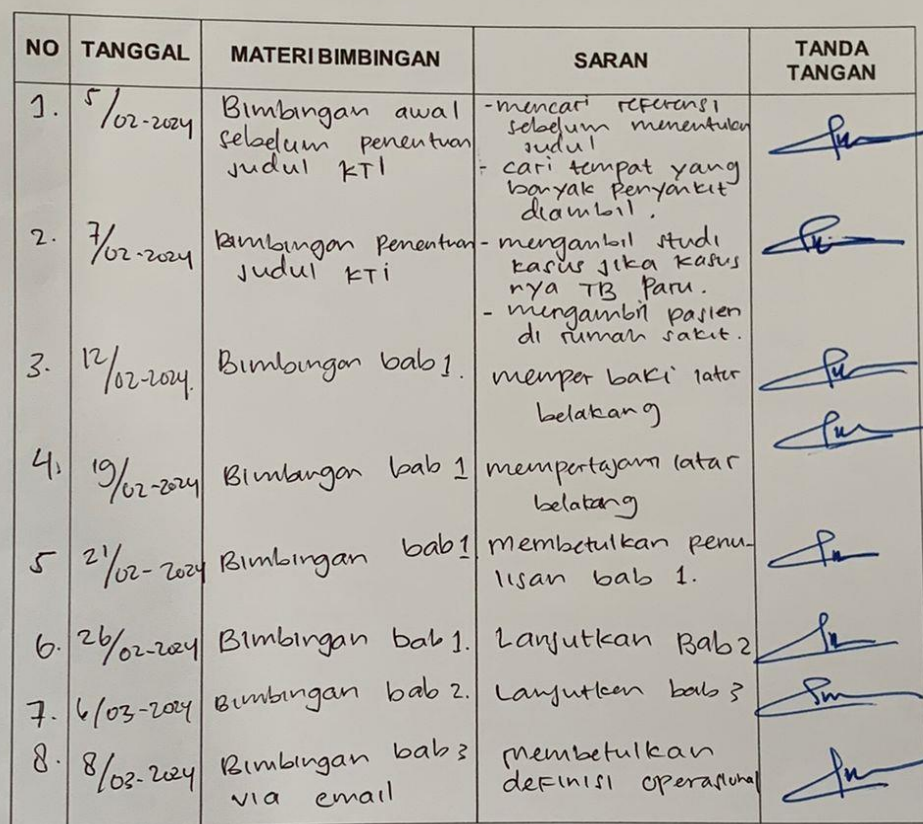 NO TANGGAL MATERI BIMBINGAN SARAN TANDA TANGAN
1. 5/02-2024 Bimbingan awal - mencari referensi
sebelum penentuan sebelum menentukan
judul KTI judul
- cari tempat yang
banyak penyankit
diambil.
2. 7/02-2024 Bimbingan Penentuan - mengambil studi
judul KTI kasus jika kasus
nya TB Paru.
- mengambil pasien
di rumah sakit.
3. 12/02-2024. Bimbingan bab 1. memper baki latar
belakang
4. 19/02-2024 Bimbingan bab 1 mempertajam latar
belakang
5 21/02-2024 Bimbingan bab 1 membetulkan penu-
lisan bab 1.
6. 26/02-2024 Bimbingan bab 1. Lanjutkan Bab 2
7. 6/03-2024 Bimbingan bab 2. Lanjutkan bab 3
8. 8/03-2024 Bimbingan bab 3 membetulkan
via email definisi operasional